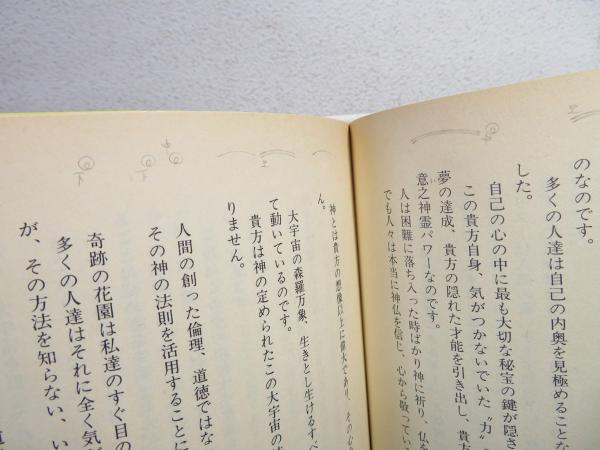 のなのです。
多くの人達は自己の内奥を見極めることな
した。
自己の心の中に最も大切な秘宝の鍵が隠さ
この貴方自身、気がつかないでいた〝力〟
夢の達成、貴方の隠れた才能を引き出し、貴方
意之神霊パワーなのです。
人は困難に落ち入った時ばかり神に祈り、仏を
でも人々は本当に神仏を信じ、心から敬ってい
神とは貴方の想像以上に偉大であり、その心
ん。
大宇宙の森羅万象、生きとし生けるすべ
て動いているのです。
貴方は神の定められたこの大宇宙の
りません。
人間の創った倫理、道徳ではな
その神の法則を活用することに
奇跡の花園は私達のすぐ目の
多くの人達はそれに全く気が
が、その方法を知らない、い